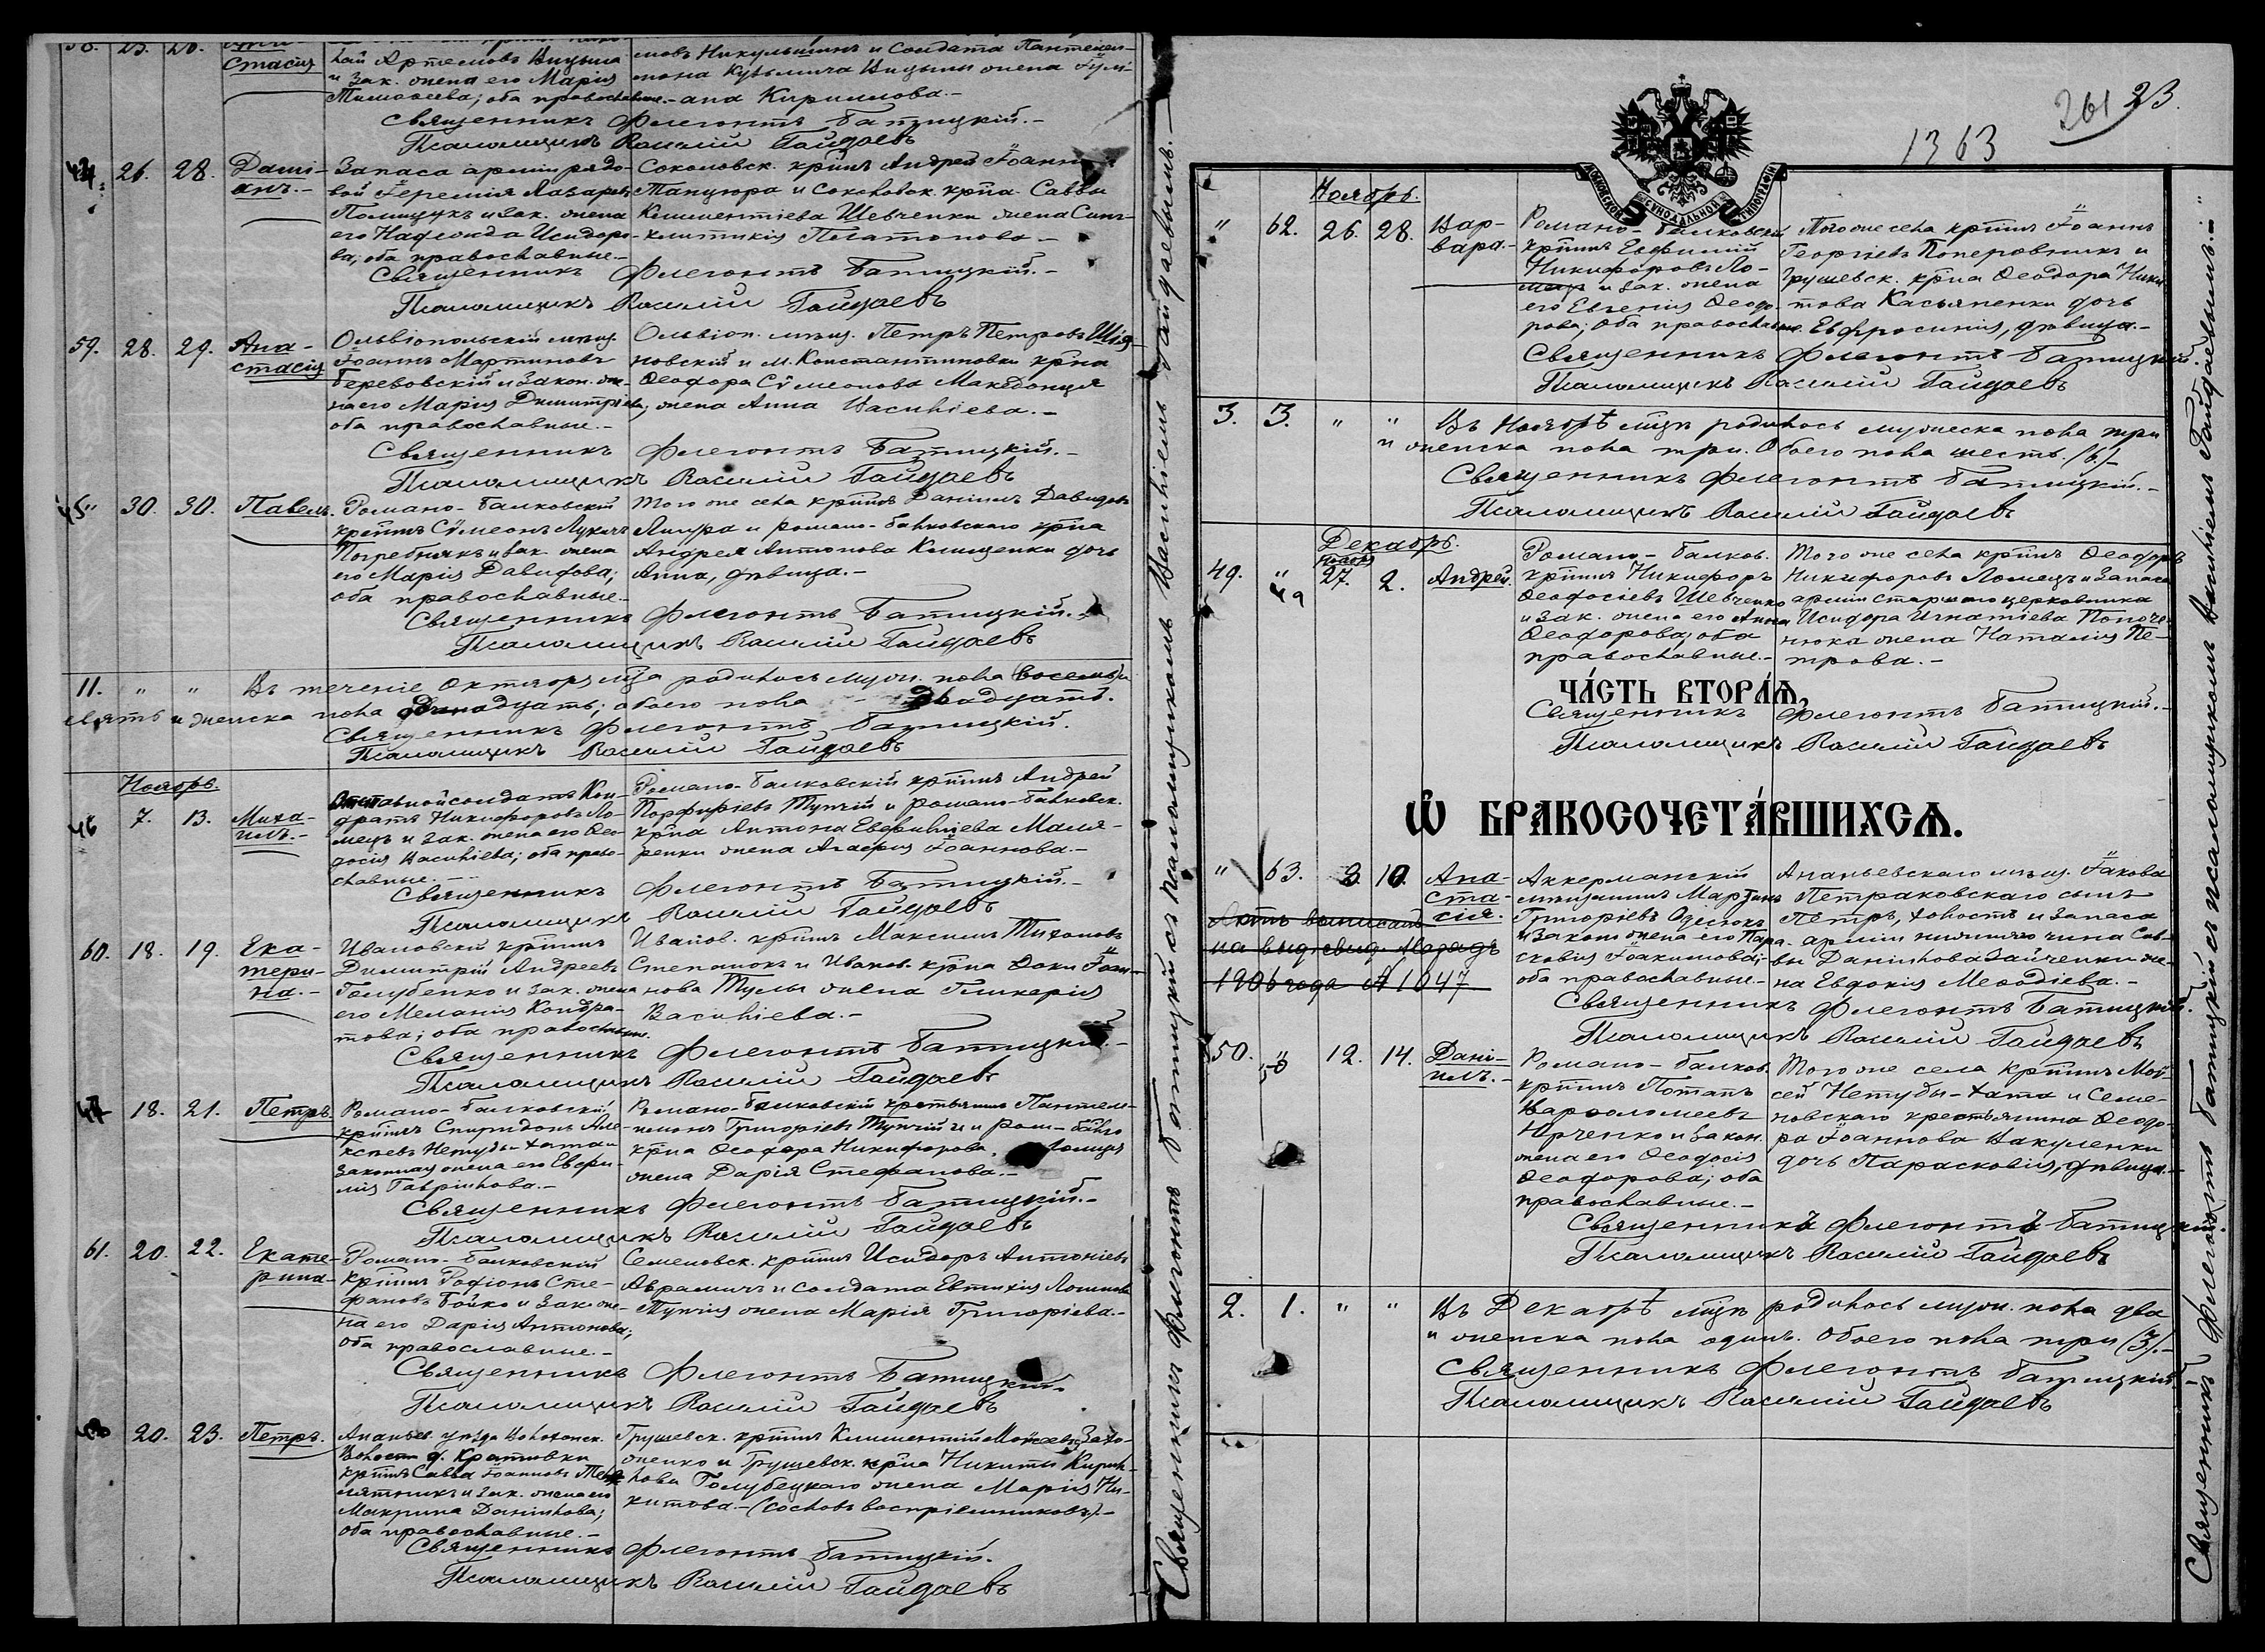 58. 25. 26.
стасія
кай Артемовъ Цицыма
и зак. жена его Марія
Тимофеева; оба православные.-
мовъ Никульшинъ и солдата Пантелеи-
мона Кузьмича Цицыми жена Іулі-
ана Кириллова.-
Священникъ Флегонтъ Батицкій.-
Псаломщикъ Василій Гайдаевъ
44. 26. 28. Дамі-
анъ.-
Запаса арміи рядо-
вой Іеремія Лазаревъ
Полищукъ и зак. жена
его Надежда Исидоро-
ва; оба православные.-
Соколовск. крнъ Андрей Іоанн
Танцюра и Соколовск. крна Саввы
Климентіева Шевченки жена Синк-
литикія Платонова.-
Священникъ Флегонтъ Батицкій.-
Псаломщикъ Василій Гайдаевъ
59. 28. 29. Ана-
стасія
Ольвіопольскій мѣщ.
Іоаннъ Мартиновъ
Березовскій и закон. же-
на его Марія Димитріева;
оба православные.-
Ольвіоп. мѣщ. Петръ Петровъ
новскій и м. Константиновки крна
Ѳеодора Сѵмеонова Македонця
жена Анна Васильева.-
Священникъ Флегонтъ Батицкій.-
Псаломщикъ Василій Гайдаевъ
45 30. 30. Павелъ.
Романо-Балковскій
крнъ Сѵмеонъ Лукинъ
Погребнякъ и зак. жена
его Марія Давидова;
оба православные.-
Того же села крнъ Даніилъ Давидовъ
Ляшра и Романо-Балковскаго крна
Андрея Антонова Клищенки дочь
Анна, дѣвица.-
Священникъ Флегонтъ Батицкій.-
Псаломщикъ Василій Гайдаевъ
11. " " Въ теченіе Октября мца родилось муж. пола восемь
девять и женска пола одинадцать; обоего пола двадцать.
Священникъ Флегонтъ Батицкій.
Псаломщикъ Василій Гайдаевъ
Ноябрь.
46 7. 13. Миха-
илъ.-
Отставной солдатъ Кон-
дратъ Никифоровъ Ло-
мецъ и зак. жена его Ѳео-
досія Васильева; оба право-
славные.-
Романо-Балковскій крнъ Андрей
Порфиріевъ Тупчій и Романо-Балковск.
крна Антона Евфиміева Маля-
ренки жена Агафія Іоаннова.-
Священникъ Флегонтъ Батицкій.-
Псаломщикъ Василій Гайдаевъ
60. 18. 19. Ека-
тери-
на.-
Ивановскій крнъ
Димитрій Андреевъ
Голубенко и зак. жена
его Меланія Кондра-
това; оба православные.
Иванов. крнъ Максимъ Тихоновъ
Степанокъ и Иванов. крна Ѳоки Іоан-
нова Тулы жена Гликерія
Васильева.-
Священникъ Флегонтъ Батицкій.-
Псаломщикъ Василій Гайдаевъ
47 18. 21. Петръ
Романо-Балковскій
крнъ Спиридонъ Але-
ксѣевъ Нетуды-хата и
законная жена его Евфи-
мія Гаврилова.-
Романо-Балковскій крестьянинъ Пантеле-
имонъ Григоріевъ Тупчій и Ром-Балко
крна Ѳеодора Никифорова Ломца
жена Дарія Стефанова.-
Священникъ Флегонтъ Батицкій.-
Псаломщикъ Василій Гайдаевъ
61. 20. 22. Екате-
рина-
Романо-Балковскій
крнъ Родіонъ Сте-
фановъ Бойко и зак. же-
на его Дарія Антонова;
оба православные.-
Семеновск. крнъ Исидоръ Антоніевъ
Аврамичъ и солдата Евтихія Логинова
Тупчія жена Марія Григоріева.-
Священникъ Флегонтъ Батицкій.
Псаломщикъ Василій Гайдаевъ
48 20. 23. Петръ.
Ананьев. уѣзда
Волости д. Кратовки
крнъ Савва Іоанновъ
и зак. жена его
Макрина Даніилова;
оба православные.-
Грушевск. крнъ Климентій Моисеевъ Захо-
женко и Грушевск. крна Никиты Кирил-
лова Голубецкаго жена Марія Ни-
китова.-(Сословъ воспріемниковъ).-
Священникъ Флегонтъ Батицкій.
Псаломщикъ Василій Гайдаевъ
Священникъ Флегонтъ Батицкій съ псаломщикомъ Василіемъ Гайдаевымъ.-
261 23.
1363
МОСКОВСКОЙ СУНОДАЛЬНОЙ ТИПОГРАФІИ
Ноябрь.
" 62. 26. 28. Вар-
вара.-
Романо-Балковскій
крнъ Евфимій
Никифоровъ Ло-
мецъ и зак. жена
его Евгенія Ѳеодо-
рова; оба православные.
Того же села крнъ Іоаннъ
Георгіевъ Поперовникъ и
Грушевск. крна Ѳеодора Ники-
това Касьяненки дочь
Евфросинія, дѣвица.-
Священникъ Флегонтъ Батицкій.
Псаломщикъ Василій Гайдаевъ
3. 3. " " Въ Ноябрѣ мцѣ родилось мужеска пола три
и женска пола три. Обоего пола шесть. (6)-
Священникъ Флегонтъ Батицкій.-
Псаломщикъ Василій Гайдаевъ
Декабрь.
Ноября
49. " 49 27. 2. Андрей.
Романо-Балков.
крнъ Никифоръ
Ѳеодосіевъ Шевченко
и зак. жена его Анна
Ѳеодорова; оба
православные.-
Того же села крнъ Ѳеодоръ
Никифоровъ Ломецъ и запаса
арміи старшаго церковника
Исидора Игнатіева
нюка жена Наталія Пе-
трова.-
ЧА́СТЬ ВТОРА́Я,
Священникъ Флегонтъ Батицкій.-
Псаломщикъ Василій Гайдаевъ
Ѽ БРАКОСОЧЕТА́ВШИХСЯ.
" 63. 8. 10. Ана-
ста-
сія.
Актъ выписанъ
на выд. свид.
1906 года № 1047
Аккерманскій
мѣщанинъ
Григоріевъ
и закон. жена его Пара-
сковія Іоакимова;
оба православные.-
Ананьевскаго мѣщ. Іакова
Петраковскаго сынъ
Петръ, холостъ и запаса
арміи нижняго чина Сав-
вы Даніилова Зайченки же-
на Евдокія Меѳодіева.-
Священникъ Флегонтъ Батицкій.
Псаломщикъ Василій Гайдаевъ
50. " 50 12. 14. Дані-
илъ.-
Романо-Балков.
крнъ Потапъ
Варѳоломеевъ
Юрченко и закон.
жена его Ѳеодосія
Ѳеодорова; оба
православные.-
Того же села крнъ Мой-
сей Нетуды-хата и Семе-
новскаго крестьянина Ѳеодо-
ра Іоаннова Вакуленки
дочь Парасковія, дѣвица.-
Священникъ Флегонтъ Батицкій.
Псаломщикъ Василій Гайдаевъ
2. 1. " " Въ Декабрѣ мцѣ родилось муж. пола два
и женска пола одинъ. Обоего пола три (3).-
Священникъ Флегонтъ Батицкій.
Псаломщикъ Василій Гайдаевъ
Священникъ Флегонтъ Батицкій съ псаломщикомъ Василіемъ Гайдаевымъ.-